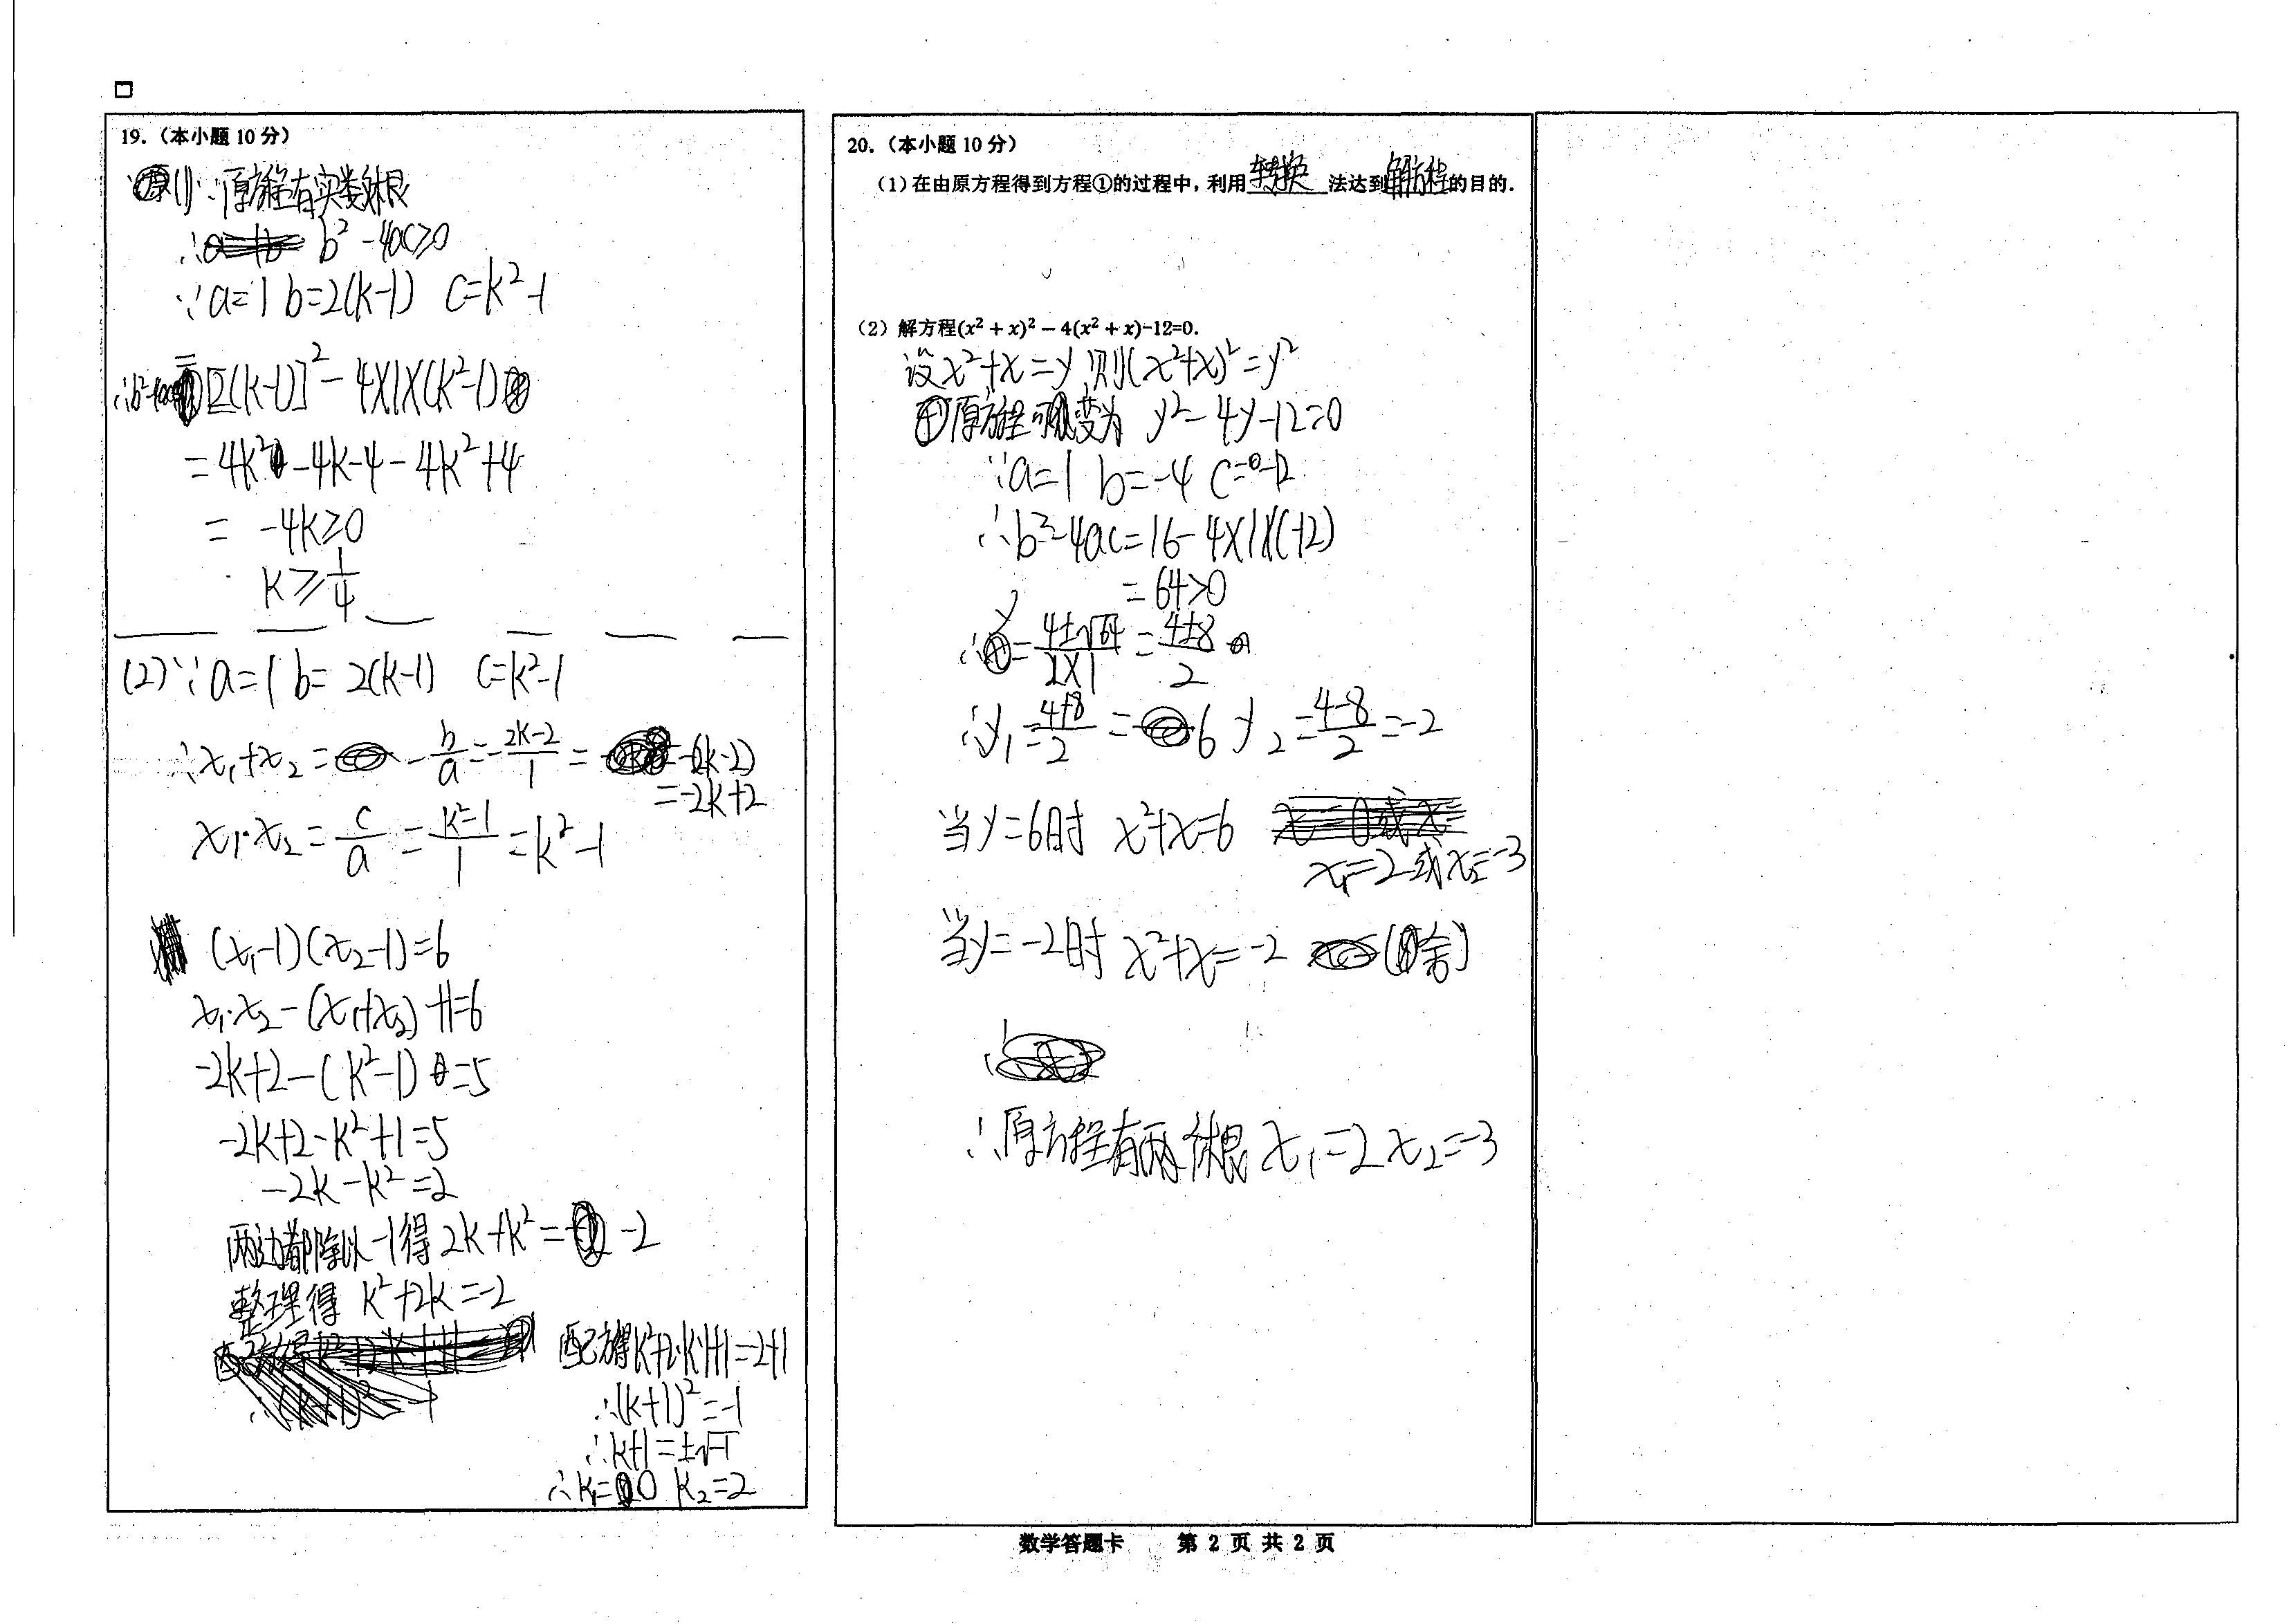 19.（本小题 10 分）
(1)∵原方程有实数根
∴ b²-4ac≥0
∵a=1 b=2(k-1) c=k²-1
∴b²-4ac=[2(k-1)]²-4×1×(k²-1)
=4k²-4k-4-4k²+4
= -4k≥0
k≥1/4
(2)∵a=1 b= 2(k-1) c=k²-1
∴x₁+x₂= -b/a=-(2k-2)/1= -(2k-2)
=-2k+2
x₁·x₂=c/a=(k²-1)/1=k²-1
(x₁-1)(x₂-1)=6
x₁·x₂-(x₁+x₂)+1=6
-2k+2-(k²-1)=5
-2k+2-k²+1=5
-2k-k²=2
两边都除以-1得 2k+k²= -2
整理得 k²+2k=-2
配方得k²+2·k·1+1=-2+1
∴(k+1)²=-1
∴k+1=±√-1
∴k₁=0 k₂=2
20.（本小题 10 分）
（1）在由原方程得到方程①的过程中，利用 转换 法达到 解方程 的目的.
（2）解方程(x² + x)² − 4(x² + x)-12=0.
设x²+x=y 则(x²+x)²=y²
原方程可变为 y²-4y-12=0
∵a=1 b=-4 c=-12
∴b²-4ac=16-4×1×(-12)
=64>0
∴y=(4±√64)/(2×1)=(4±8)/2
∴y₁=(4+8)/2=6 y₂=(4-8)/2=-2
当y=6时 x²+x=6
x₁=2或x₂=-3
当y=-2时 x²+x=-2 (舍)
∴原方程有两个根 x₁=2 x₂=-3
数学答题卡 第 2 页 共 2 页